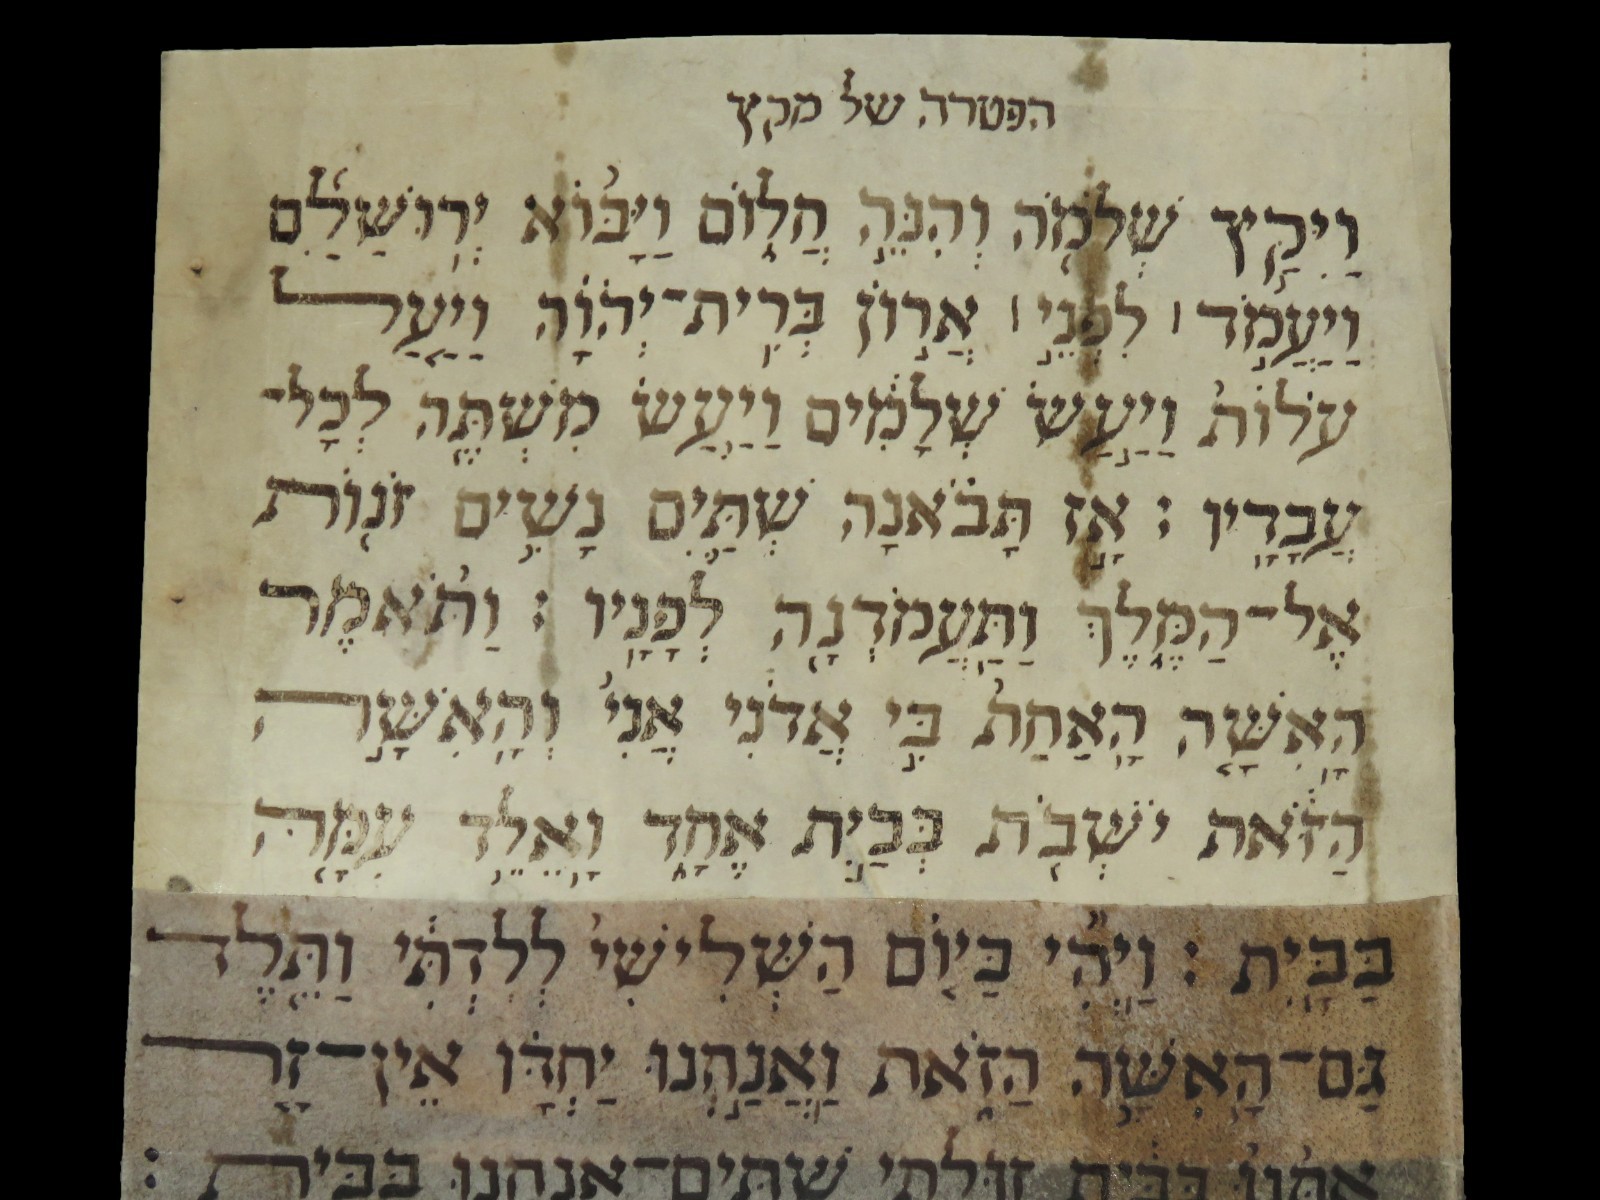 הפטרה של מקץ
וַיִּקַ֥ץ שְׁלֹמֹ֖ה וְהִנֵּ֣ה חֲל֑וֹם וַיָּב֨וֹא יְרֽוּשָׁלַ֜͏ִם
וַֽיַּעֲמֹ֣ד ׀ לִפְנֵ֣י ׀ אֲר֣וֹן בְּרִֽית־יְהֹוָ֗ה וַיַּ֤עַל
עֹלוֹת֙ וַיַּ֣עַשׂ שְׁלָמִ֔ים וַיַּ֥עַשׂ מִשְׁתֶּ֖ה לְכָל־
עֲבָדָֽיו ׃ אָ֣ז תָּבֹ֗אנָה שְׁתַּ֛יִם נָשִׁ֥ים זֹנ֖וֹת
אֶל־הַמֶּ֑לֶךְ וַֽתַּעֲמֹ֖דְנָה לְפָנָֽיו ׃ וַתֹּ֜אמֶר
הָאִשָּׁ֤ה הָֽאַחַת֙ בִּ֣י אֲדֹנִ֔י אֲנִי֙ וְהָאִשָּׁ֣ה
הַזֹּ֔את יֹשְׁבֹ֖ת בְּבַ֣יִת אֶחָ֑ד וָאֵלֵ֥ד עִמָּ֖הּ
בַּבָּֽיִת ׃ וַיְהִ֞י בַּיּ֤וֹם הַשְּׁלִישִׁי֙ לְלִדְתִּ֔י וַתֵּ֖לֶד
גַּם־הָאִשָּׁ֣ה הַזֹּ֑את וַאֲנַ֣חְנוּ יַחְדָּ֗ו אֵֽין־זָ֤ר
אִתָּ֙נוּ֙ בַּבַּ֔יִת זוּלָתִ֥י שְׁתַּֽיִם־אֲנַ֖חְנוּ בַּבָּֽיִת ׃